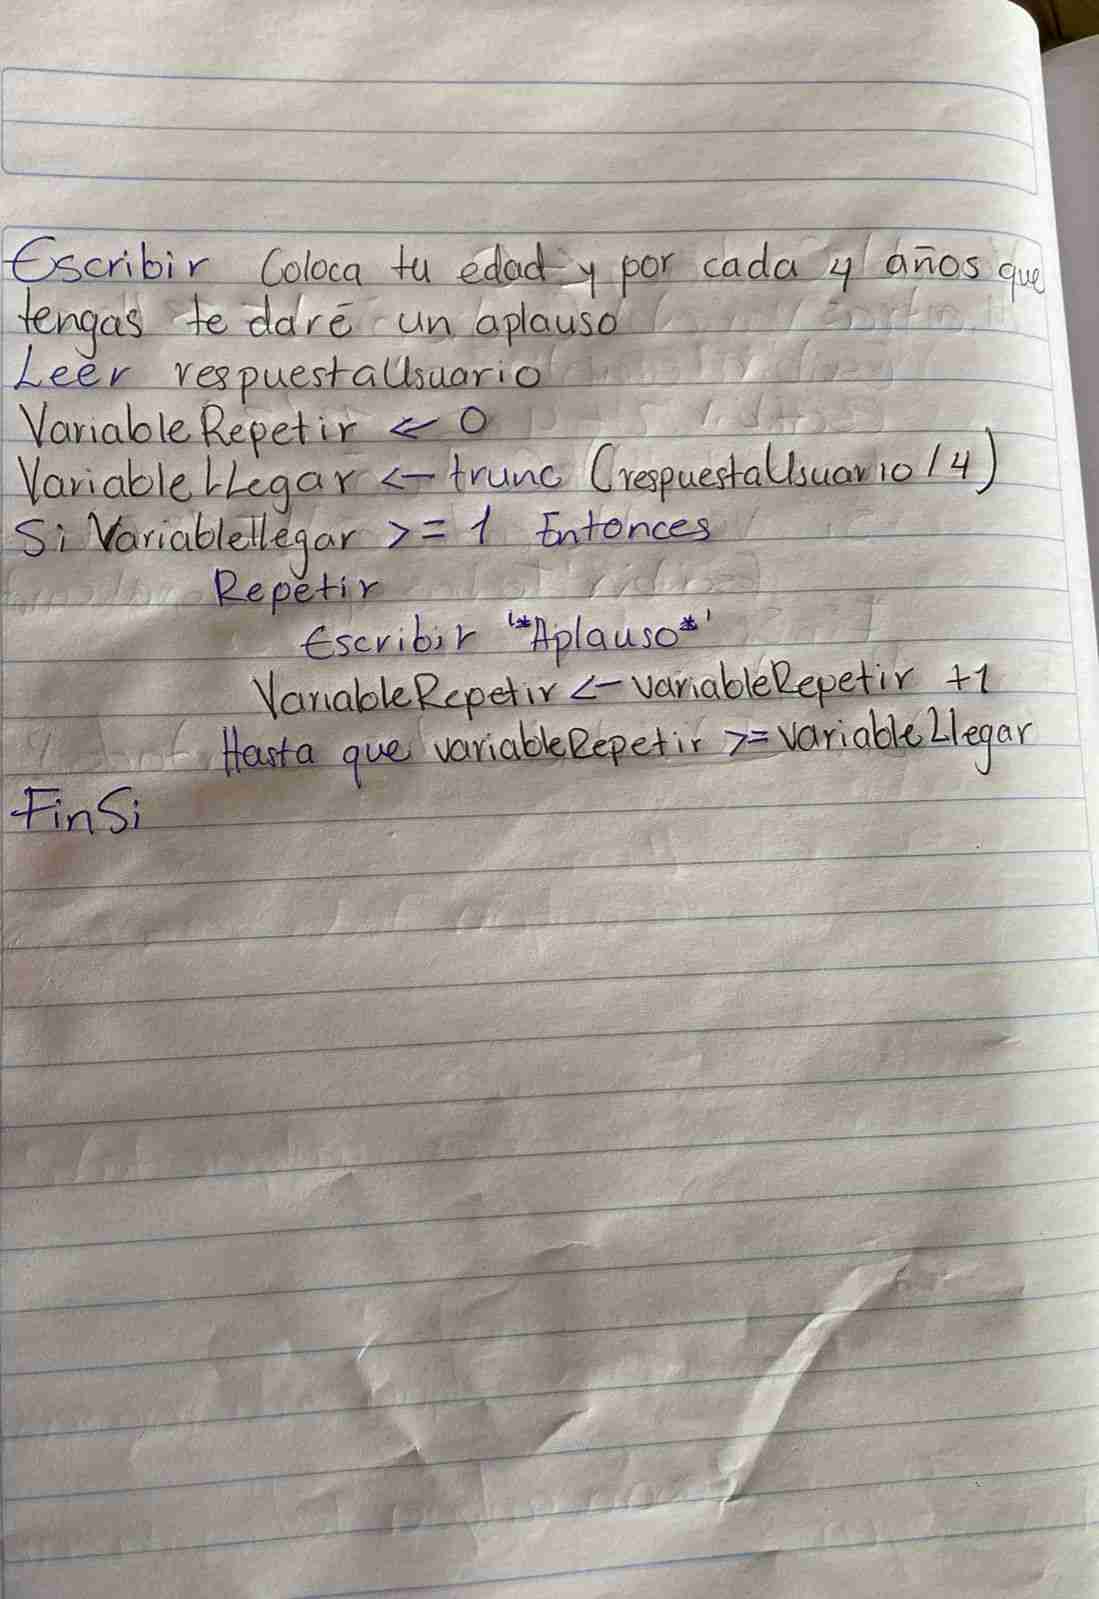 Escribir Coloca tu edad y por cada 4 años que
tengas te daré un aplauso
Leer respuestaUsuario
VariableRepetir <- 0
VariableLlegar <- trunc (respuestaUsuario/4)
Si Variablellegar >= 1 Entonces
Repetir
Escribir '*Aplauso*'
VariableRepetir <- variableRepetir +1
Hasta que variableRepetir >= variableLlegar
FinSi